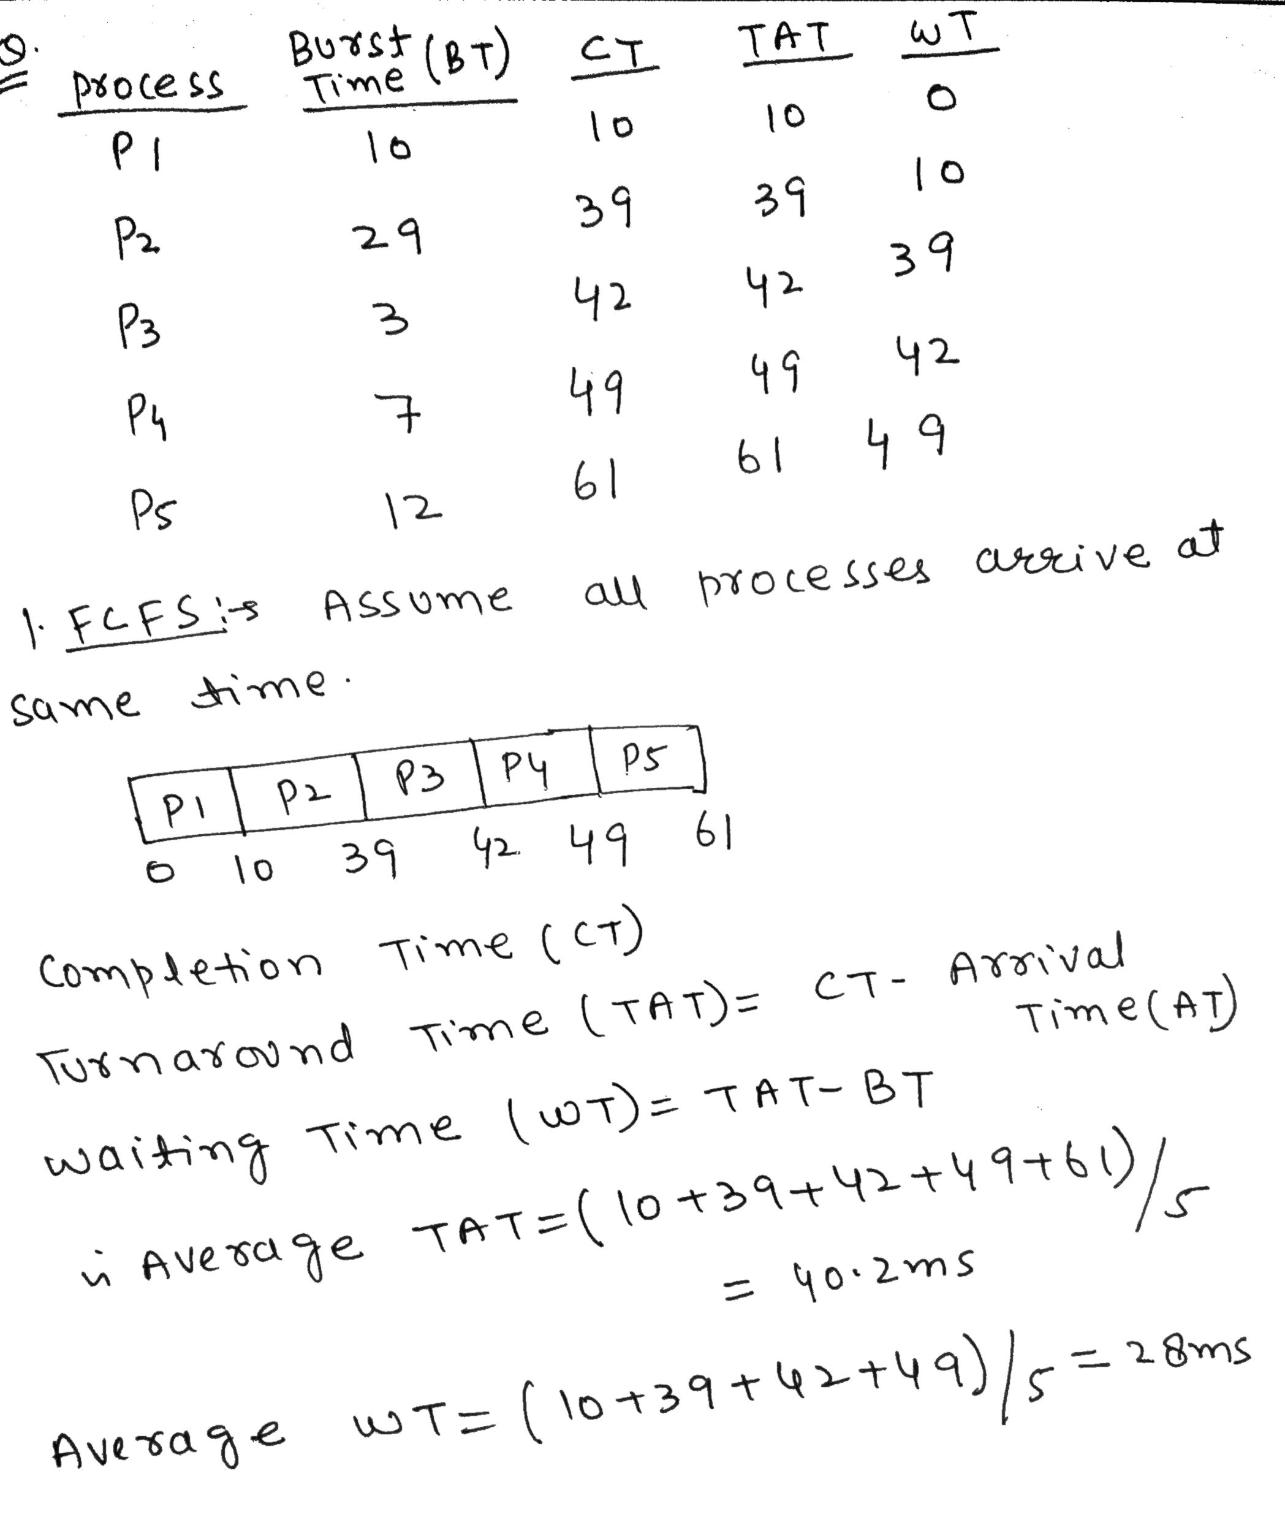 Q.
Process Burst Time (BT) CT TAT WT
P1 10 10 10 0
P2 29 39 39 10
P3 3 42 42 39
P4 7 49 49 42
P5 12 61 61 49
1. FCFS :→ Assume all processes arrive at
same time.
P1 P2 P3 P4 P5
0 10 39 42 49 61
Completion Time (CT)
Turnaround Time (TAT)= CT- Arrival
Time(AT)
Waiting Time (WT)= TAT-BT
ii Average TAT=(10+39+42+49+61)/5
= 40.2ms
Average WT= (10+39+42+49)/5 = 28ms